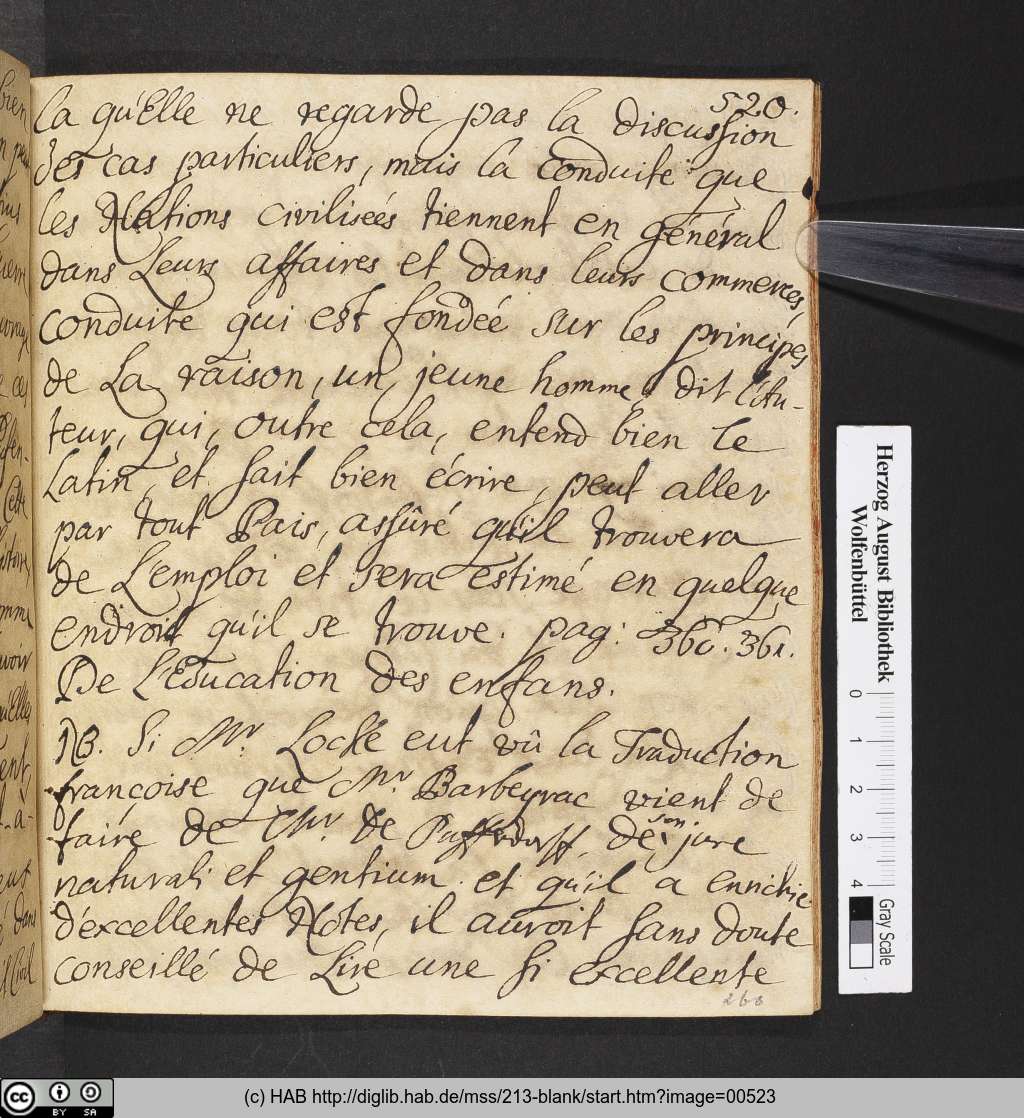 520.
la qu'Elle ne regarde pas la discussion
des cas particuliers, mais la conduite que
les Nations civiliseés tiennent en général
dans Leurs affaires et dans leurs commerces,
conduite qui est fondeé sur les principes
de La raison, un jeune homme, dit l'Au-
teur, qui, outre cela, entend bien le
Latin, et sait bien écrire, peut aller
par tout Païs, assûré qu'il trouvera
de L'emploi et sera estimé en quelque
endroit qu'il se trouve. pag: 360. 361.
De L'Education des enfans.
NB. Si Mr. Locke eut vû la Traduction
françoise que Mr. Barbeyrac vient de
faire de Mr. De Puffendorff, de son jure
naturali et gentium et qu'il a enrichie
d'excellentes Notes, il auroit sans doute
conseillé de Lire une si excellente
260
Herzog August Bibliothek
Wolfenbüttel
0 1 2 3 4
Gray Scale
cc BY SA
(c) HAB http://diglib.hab.de/mss/213-blank/start.htm?image=00523